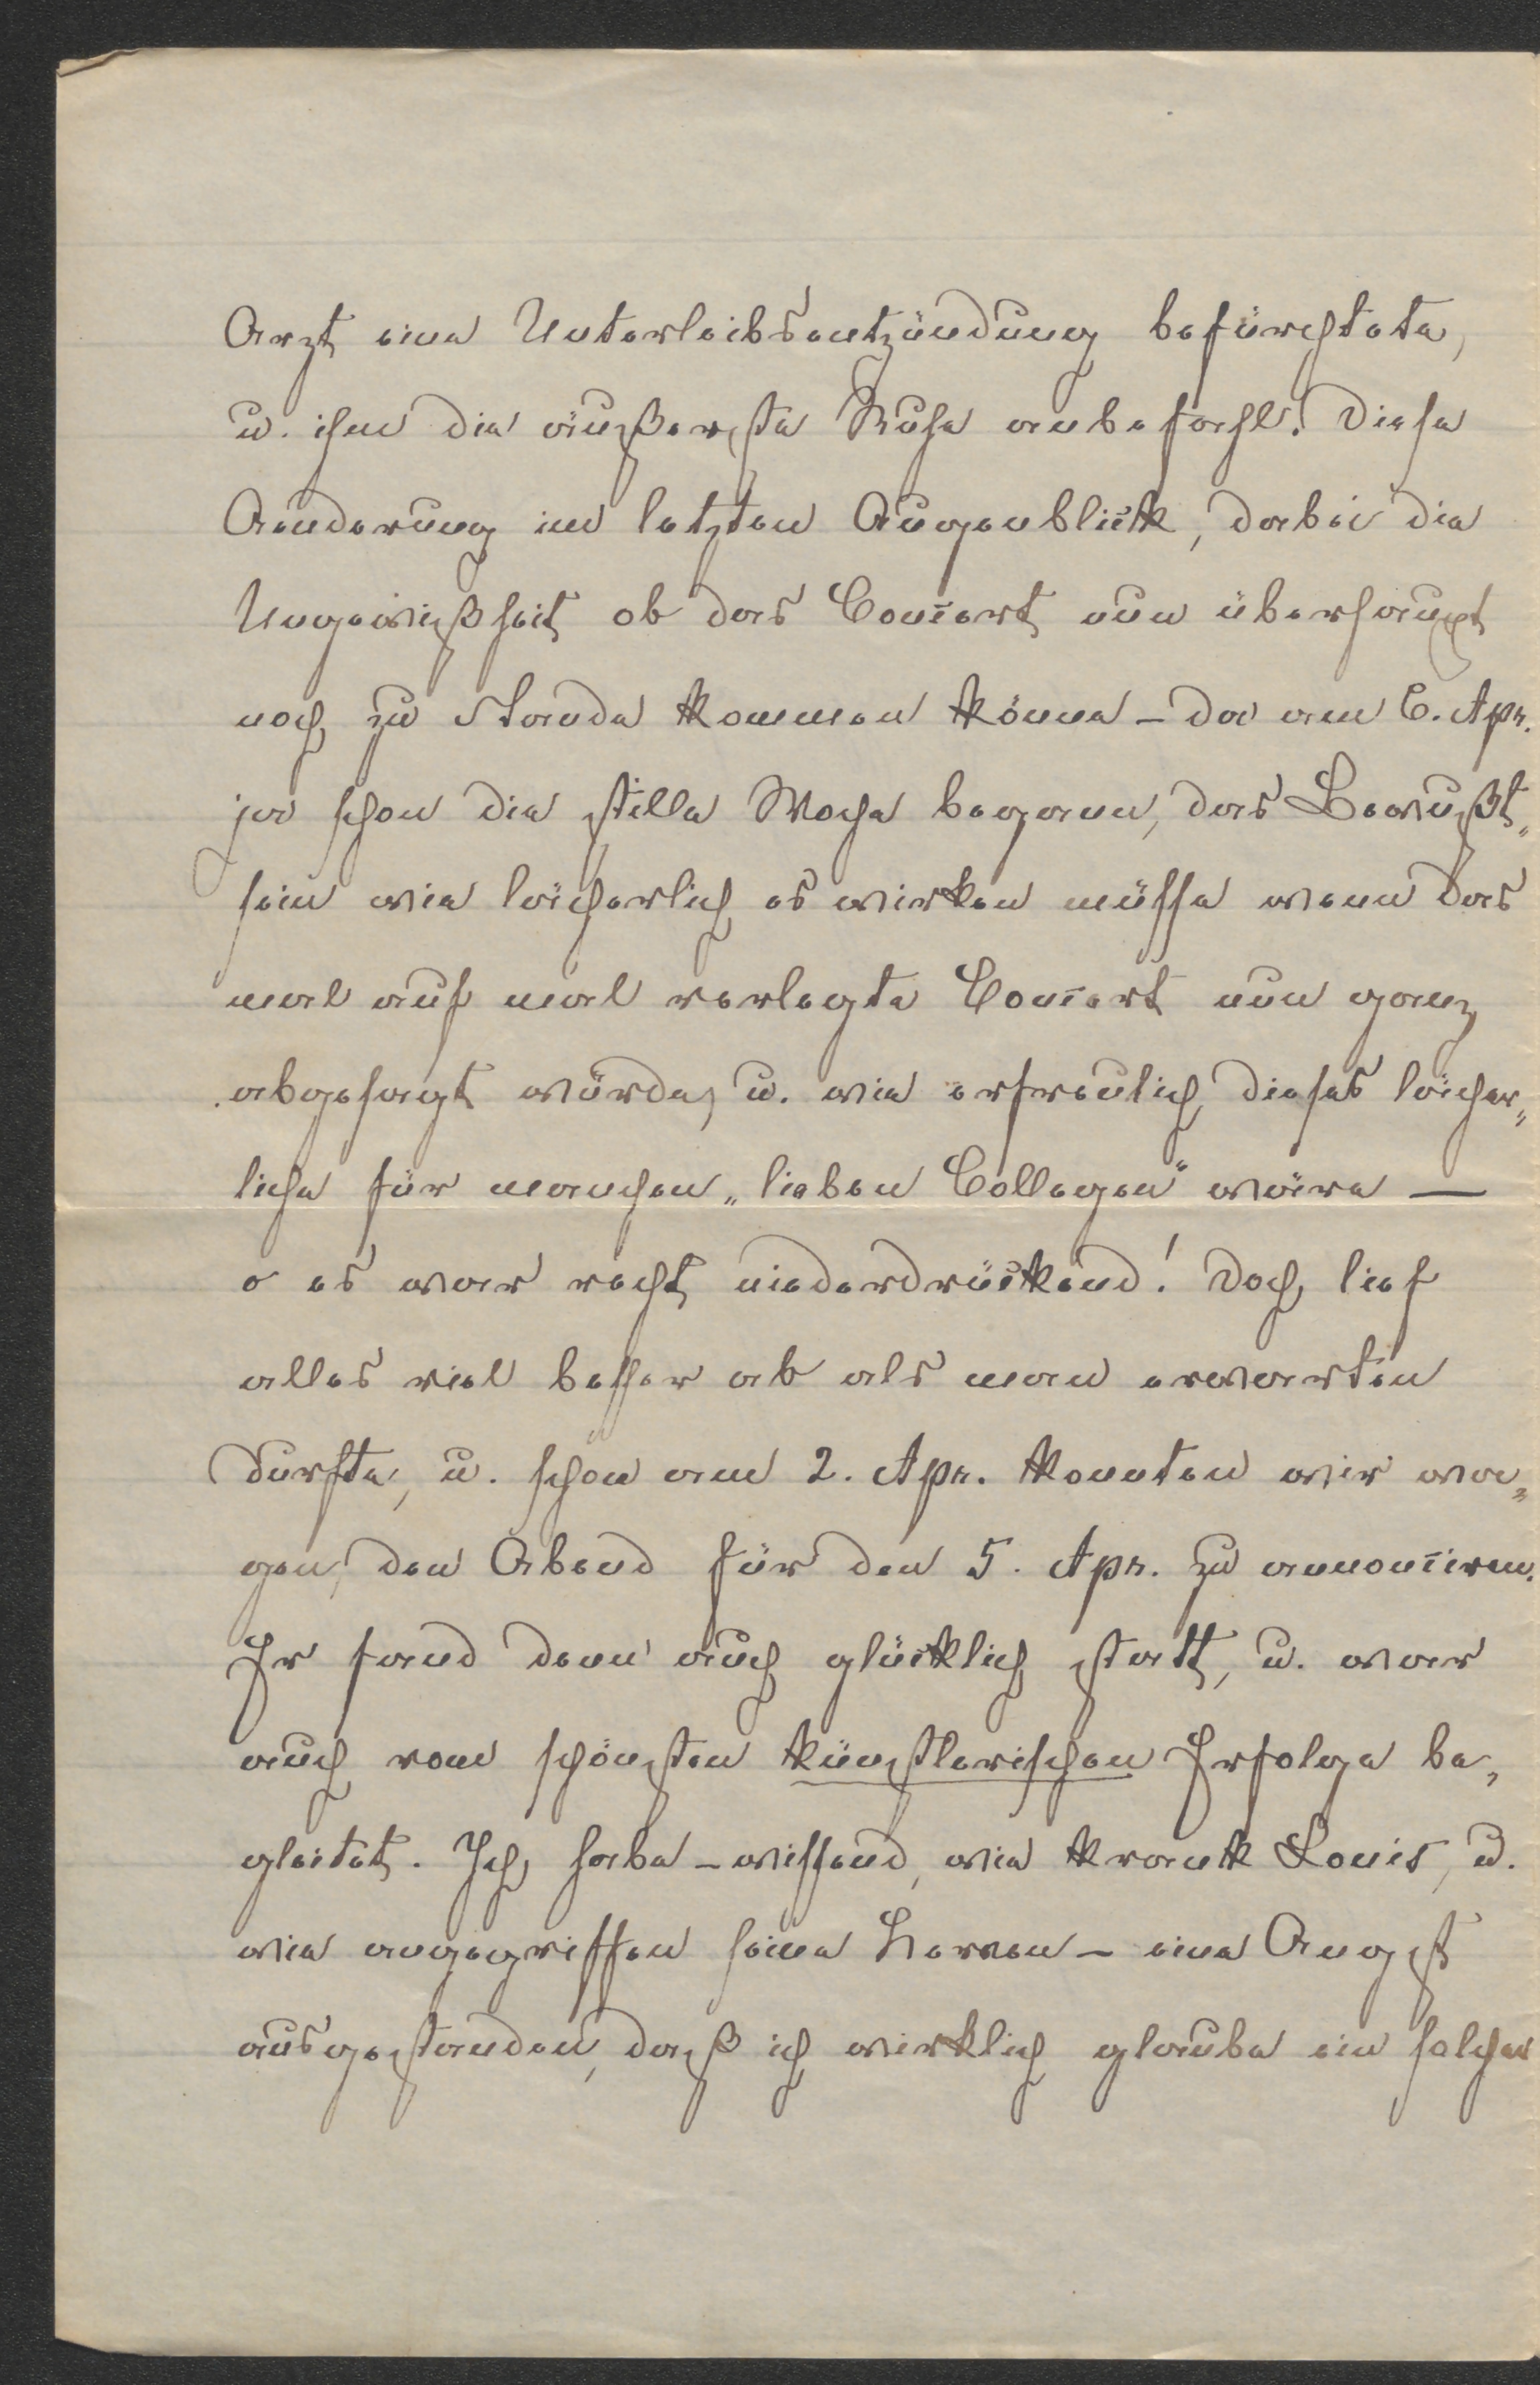 Arzt eine Unterleibsentzündung befürchtete,
u. ihm die äußerste Ruhe anbefahl. Diese
Aenderung im letzten Augenblick, dabei die
Ungewißheit ob das Concert nun überhaupt
noch zu Stande kommen könne – da am 6. Apr.
ja schon die stille Woche begann, das Bewußt„
sein wie lächerlich es wirken müsse wenn das
mal auf mal verlegte Concert nun ganz
abgesagt würde, u. wie erfreulich dieses lächer„
liche für manchen „lieben Collegen“ wäre —
o es war recht niederdrückend! Doch lief
alles viel besser ab als man erwarten
durfte, u. schon am 2. Apr. konnten wir wa„
gen, den Abend für den 5. Apr. zu annonciren.
Er fand denn auch glücklich statt, u. war
auch vom schönsten künstlerischen Erfolge be„
gleitet. Ich habe – wissend, wie krank Louis, u.
wie angegriffen seine Nerven – eine Angst
ausgestanden, daß ich wirklich glaube ein solcher